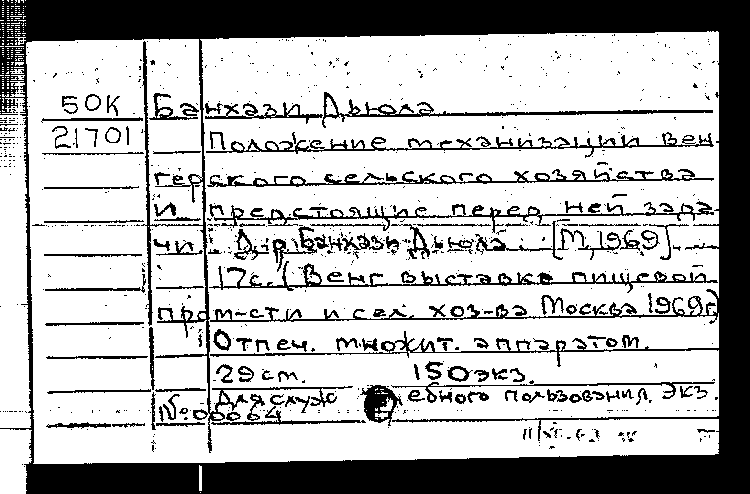 50К Банхази, Дьюла.
21701 Положение механизации вен-
герского сельского хозяйства
и предстоящие перед ней зада-
чи. Д-р Банхази Дьюла. [М, 1969]
17с. (Венг выставка пищевой
пром-сти и сел. хоз-ва Москва 1969г)
Отпеч. множит. аппаратом.
29 см. 150 экз.
Для служебного пользования. Экз.
№ 00064